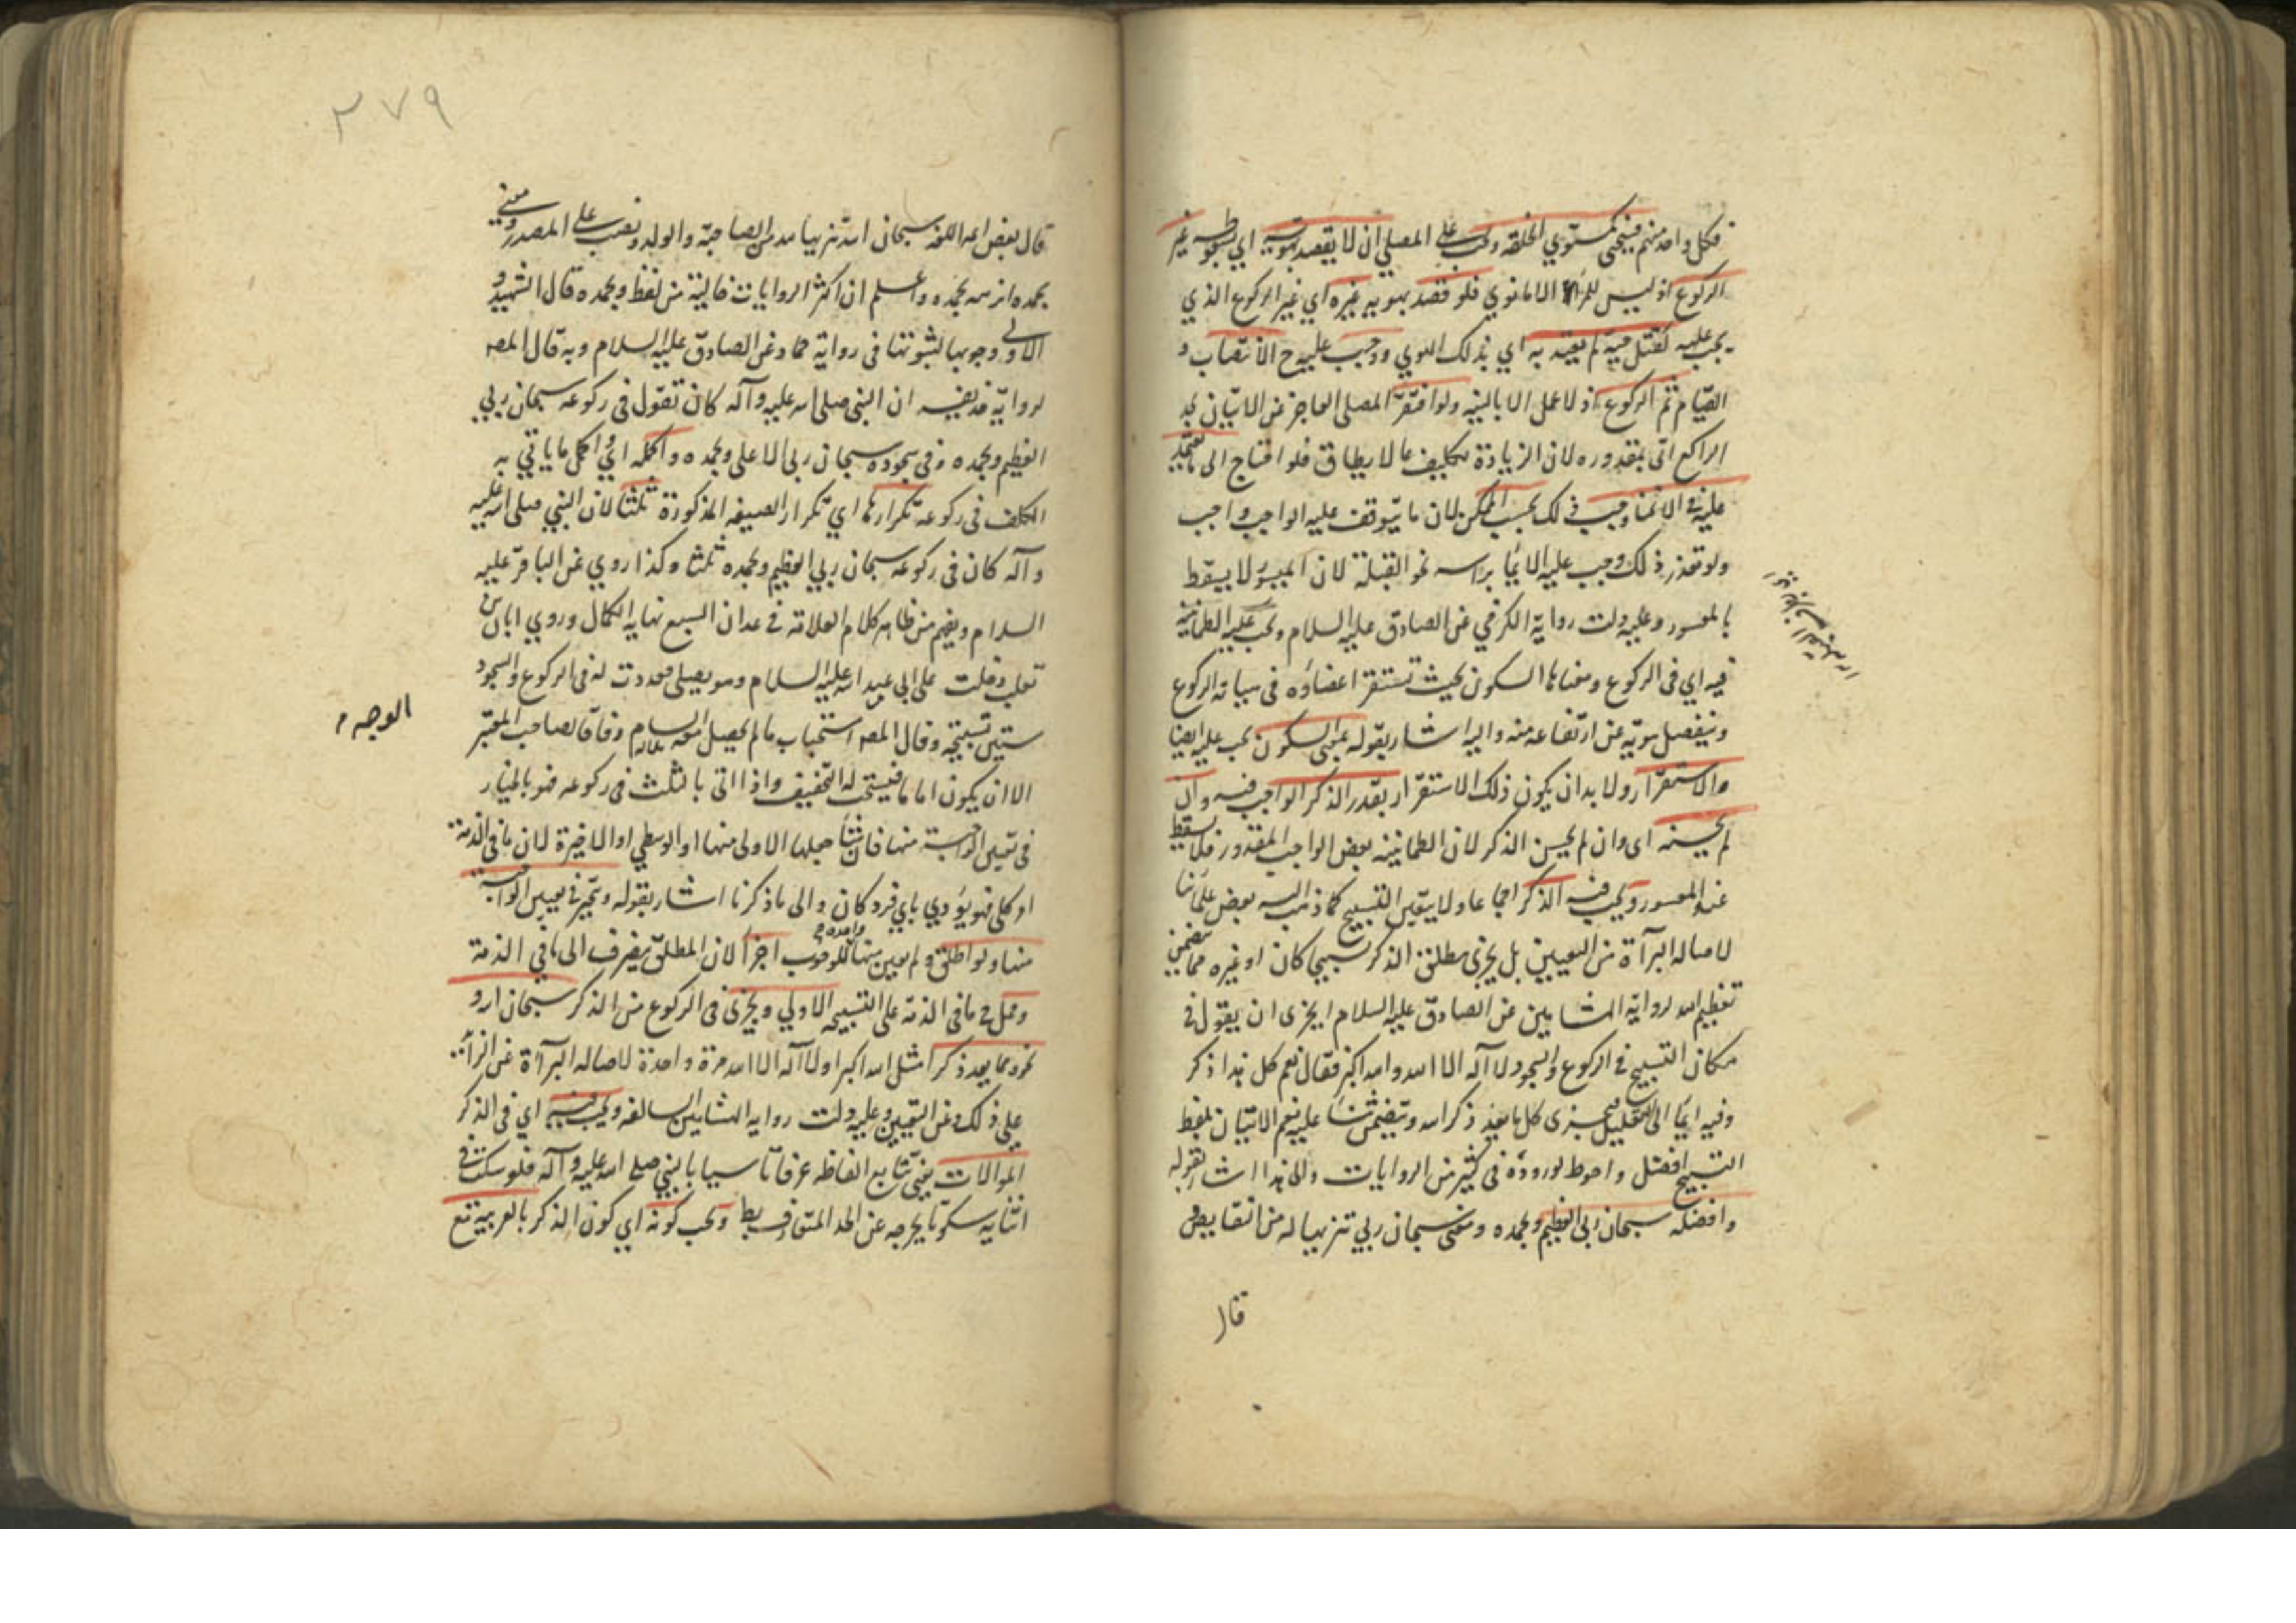 فكل واحد منهم فينحني كمستوي الخلقة ويجب على المصلي ان لا يقصد بهويه اي بسقوطه غير
الركوع اذ ليس للمرء الا ما نوي فلو قصد بهويه غيره اي غير الركوع الذي
يجب عليه كقتل حية لم يعتد به اي بذلك الهوي ووجب عليه ح الانتصاب و
القيام ثم الركوع اذ لا عمل الا بالنية ولو افتقر المصلي العاجز عن الاتيان بحد
الراكع اتى بمقدوره لان الزيادة تكليف بما لا يطاق فلو احتاج الى ما يعتمد
عليه في الانحناء وجب ذلك بحسب الممكن لان ما يتوقف عليه الواجب واجب
ولو تعذر ذلك وجب عليه الايماء براسه نحو القبلة لان الميسور لا يسقط
بالمعسور وعليه دلت رواية الكرخي عن الصادق عليه السلام ويجب عليه الطمانينة
فيه اي في الركوع ومعناها السكون بحيث تستقر اعضاؤه في هياته الركوع
وينفصل هويه عن ارتفاعه منه واليه اشار بقوله بمعنى السكون يجب عليه ايضا
والاستقرار ولا بد ان يكون ذلك الاستقرار بقدر الذكر الواجب فيه وان
لم يحسنه اى وان لم يحسن الذكر لان الطمانينة بعض الواجب المقدور فلا يسقط
عنه المعسور ويجب فيه الذكر اجماعا ولا يتعين التسبيح كما ذهب اليه بعض علمائنا
لاصالة البرآة من التعيين بل يجزى مطلق الذكر تسبيحا كان او غيره مما يتضمن
تعظيم الله لرواية الهشامين عن الصادق عليه السلام ايجزى ان يقول في
مكان التسبيح في الركوع والسجود لا آله الا الله والله اكبر فقال نعم كل هذا ذكر
وفيه ايماء الى التعليل فيجزى كل ما يعد ذكر الله ويتضمن ثناء عليه نعم الاتيان بلفظ
التسبيح افضل واحوط لوروده في كثير من الروايات والى هذا اشار بقوله
وافضله سبحان ربي العظيم وبحمده ومعنى سبحان ربي تنزيها له من النقايص و
قال
٢٧٩
قال بعض اهل اللغه سبحان الله تنزيها لله من الصاحبة والولد ونصب على المصدر ومعنى
بحمده انزهه بحمده واعلم ان اكثر الروايات خالية من لفظ وبحمده قال الشهيد و
الاولى وجوبها لثبوتها في رواية حماد عن الصادق عليه السلام وبه قال المصـ
لرواية حذيفة ان النبي صلى الله عليه وآله كان تقول في ركوعه سبحان ربي
العظيم وبحمده وفي سجوده سبحان ربي الاعلى وبحمده واكمله اي اكمل ما ياتي به
المكلف في ركوعه تكرارها اي تكرار الصيغه المذكورة ثلثا لان النبي صلى الله عليه
وآله كان في ركوعه سبحان ربي العظيم وبحمده ثلثا وكذا روي عن الباقر عليه
السلام ويفهم من ظاهر كلام العلامة في عد ان السبع نهاية الكمال وروي ابان بن
تغلب دخلت على ابي عبد الله عليه السلام وهو يصلي فعددت له في الركوع والسجود
ستين تسبيحة وقال المصـ استحباب ما لم يحصل معه السام وفاقا لصاحب المعتبر
الوجه م
الا ان يكون اماما فيستحب له التخفيف واذا اتى بالثلث في ركوعه فهو بالخيار
في تعيين الواجبة منها فان شاء جعلها الاولى منها او الوسطى او الاخيرة لان ما في الذمة
امر كلي فهو يؤدي باي فرد كان والى ما ذكرنا اشار بقوله ويتخير في تعيين الواجبة
منها ولو اطلق ولم يعين منها واحدة للوجوب اجزأ لان المطلق يصرف الى ما في الذمة
وحمل ح ما في الذمة على التسبيحة الاولي ويجزى في الركوع من الذكر سبحان الله و
نحوه مما يعد ذكر امثل الله اكبر او لا آله الا الله مرة واحدة لاصالة البرآة عن الزائد
على ذلك وعن التعيين وعليه دلت رواية الهشامين السالفه ويجب فيه اي في الذكر
الموالات يعني تتابع الفاظه عرفا تاسيا بالنبي صلى الله عليه وآله فلو سكت في
اثنايه سكوتا يخرجه عن الحد المتعارف بطل ويجب كونه اي كون الذكر بالعربية مع